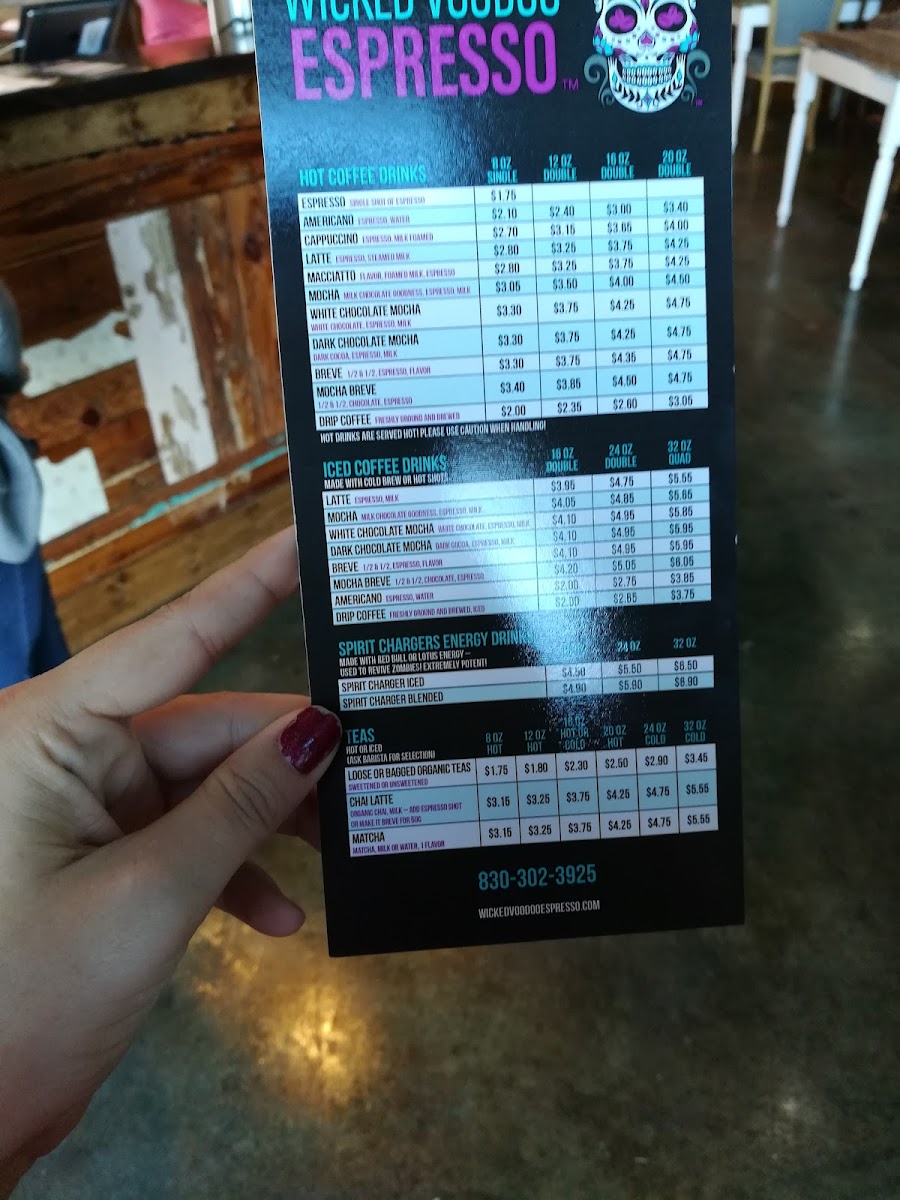 WICKED VOODOO
ESPRESSO TM
HOT COFFEE DRINKS 8 OZ SINGLE 12 OZ DOUBLE 16 OZ DOUBLE 20 OZ DOUBLE
ESPRESSO SINGLE SHOT OF ESPRESSO $1.75
AMERICANO ESPRESSO, WATER $2.10 $2.40 $3.00 $3.40
CAPPUCCINO ESPRESSO, MILK FOAMED $2.70 $3.15 $3.65 $4.00
LATTE ESPRESSO, STEAMED MILK $2.80 $3.25 $3.75 $4.25
MACCIATTO FLAVOR, FOAMED MILK, ESPRESSO $2.80 $3.25 $3.75 $4.25
MOCHA MILK CHOCOLATE GOODNESS, ESPRESSO, MILK $3.05 $3.50 $4.00 $4.50
WHITE CHOCOLATE MOCHA $3.30 $3.75 $4.25 $4.75
WHITE CHOCOLATE, ESPRESSO, MILK
DARK CHOCOLATE MOCHA $3.30 $3.75 $4.25 $4.75
DARK COCOA, ESPRESSO, MILK
BREVE 1/2 & 1/2, ESPRESSO, FLAVOR $3.30 $3.75 $4.35 $4.75
MOCHA BREVE $3.40 $3.85 $4.50 $4.75
1/2 & 1/2, CHOCOLATE, ESPRESSO
DRIP COFFEE FRESHLY GROUND AND BREWED $2.00 $2.35 $2.60 $3.05
HOT DRINKS ARE SERVED HOT! PLEASE USE CAUTION WHEN HANDLING!
ICED COFFEE DRINKS 16 OZ DOUBLE 24 OZ DOUBLE 32 OZ QUAD
MADE WITH COLD BREW OR HOT SHOTS
LATTE ESPRESSO, MILK $3.95 $4.75 $5.55
MOCHA MILK CHOCOLATE GOODNESS, ESPRESSO, MILK $4.05 $4.85 $5.65
WHITE CHOCOLATE MOCHA WHITE CHOCOLATE, ESPRESSO, MILK $4.10 $4.95 $5.85
DARK CHOCOLATE MOCHA DARK COCOA, ESPRESSO, MILK $4.10 $4.95 $5.95
BREVE 1/2 & 1/2, ESPRESSO, FLAVOR $4.10 $4.95 $5.95
MOCHA BREVE 1/2 & 1/2, CHOCOLATE, ESPRESSO $4.20 $5.05 $6.05
AMERICANO ESPRESSO, WATER $2.00 $2.75 $3.85
DRIP COFFEE FRESHLY GROUND AND BREWED, ICED $2.65 $3.75
SPIRIT CHARGERS ENERGY DRINKS 24 OZ 32 OZ
MADE WITH RED BULL OR LOTUS ENERGY –
USED TO REVIVE ZOMBIES! EXTREMELY POTENT!
SPIRIT CHARGER ICED $4.50 $5.50 $6.50
SPIRIT CHARGER BLENDED $4.90 $5.90 $6.90
TEAS 8 OZ HOT 12 OZ HOT 16 OZ HOT OR COLD 20 OZ HOT 24 OZ COLD 32 OZ COLD
HOT OR ICED
(ASK BARISTA FOR SELECTION)
LOOSE OR BAGGED ORGANIC TEAS $1.75 $1.80 $2.30 $2.50 $2.90 $3.45
SWEETENED OR UNSWEETENED
CHAI LATTE $3.15 $3.25 $3.75 $4.25 $4.75 $5.55
ORGANIC CHAI, MILK – ADD ESPRESSO SHOT
OR MAKE IT BREVE FOR 50C
MATCHA $3.15 $3.25 $3.75 $4.25 $4.75 $5.55
MATCHA, MILK OR WATER, 1 FLAVOR
830-302-3925
WICKEDVOODOOESPRESSO.COM